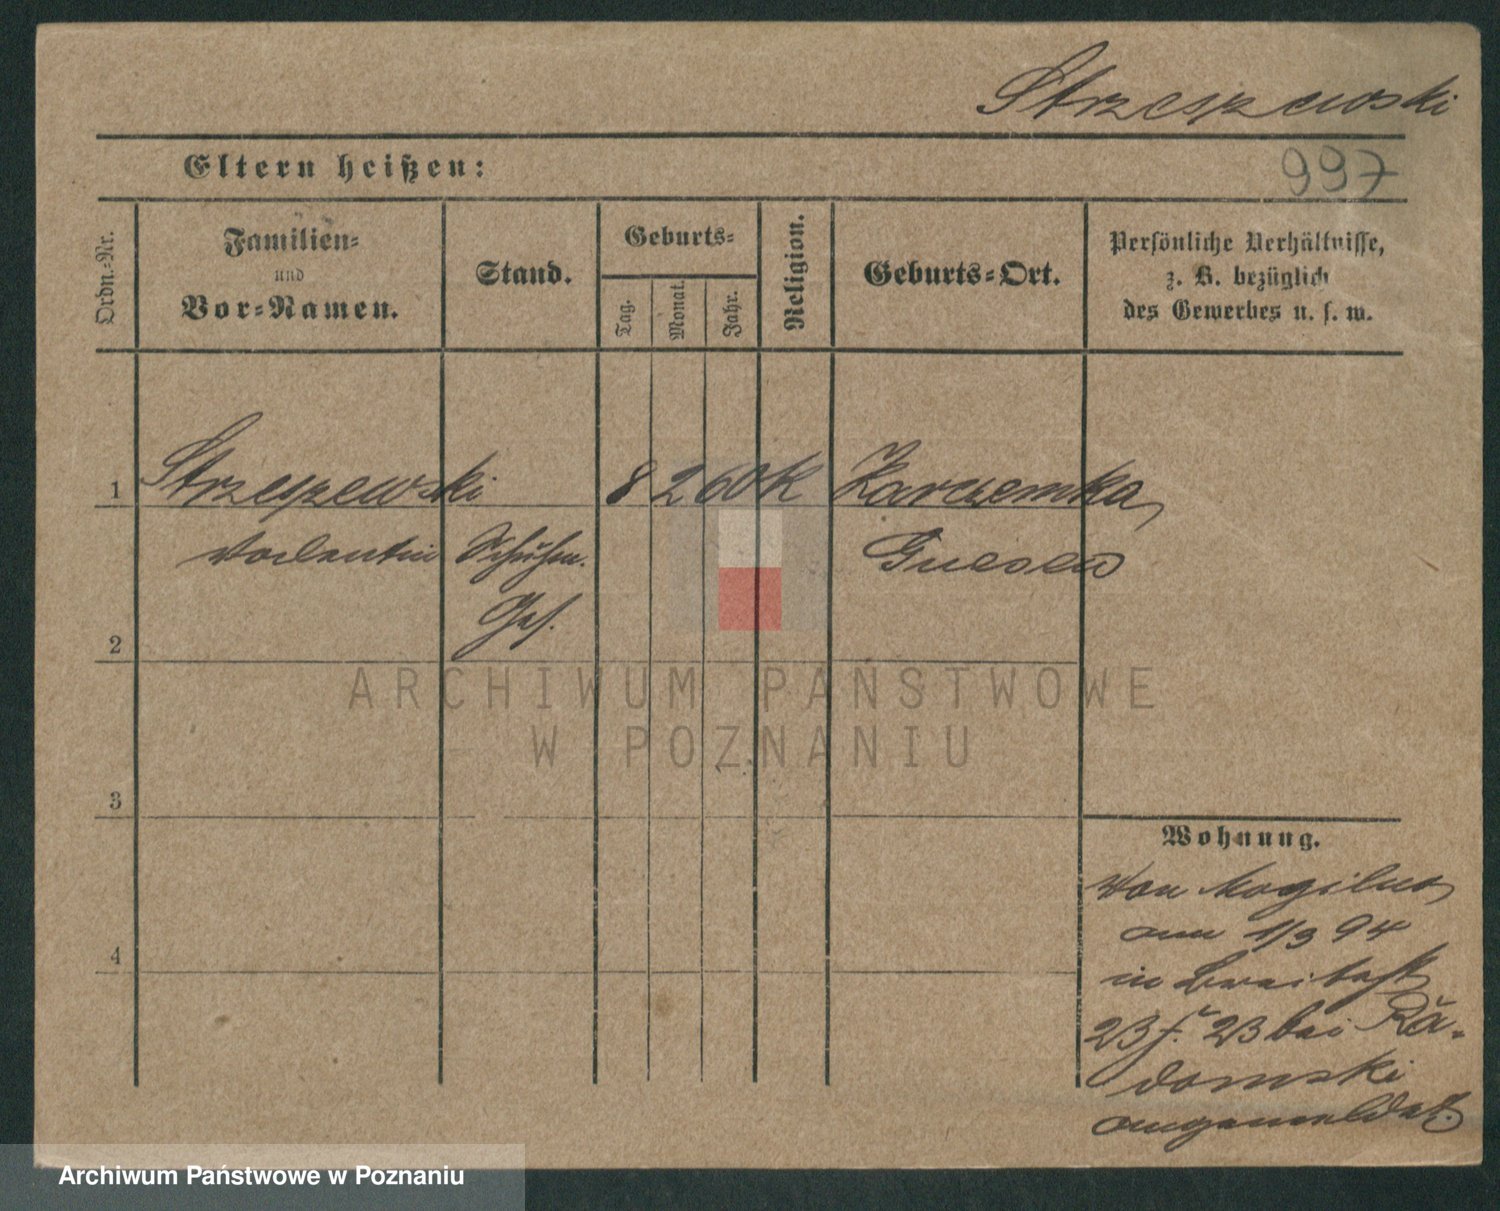 Strzeszewski
997
Eltern heißen:
Ordn.-Nr.
Familien-
und
Vor-Namen.
Stand.
Geburts-
Tag.
Monat.
Jahr.
Religion.
Geburts-Ort.
Persönliche Verhältnisse,
z. B. bezüglich
des Gewerbes u. s. w.
1 Strzeszewski 8 2 60 K
Valentin Schuhm. Gnesen
Ges.
2
ARCHIWUM PAŃSTWOWE
W POZNANIU
3
4
Wohnung.
von Mogilno
am 1/3 94
in
23 bei Ra-
domski
angemeldet.
Archiwum Państwowe w Poznaniu